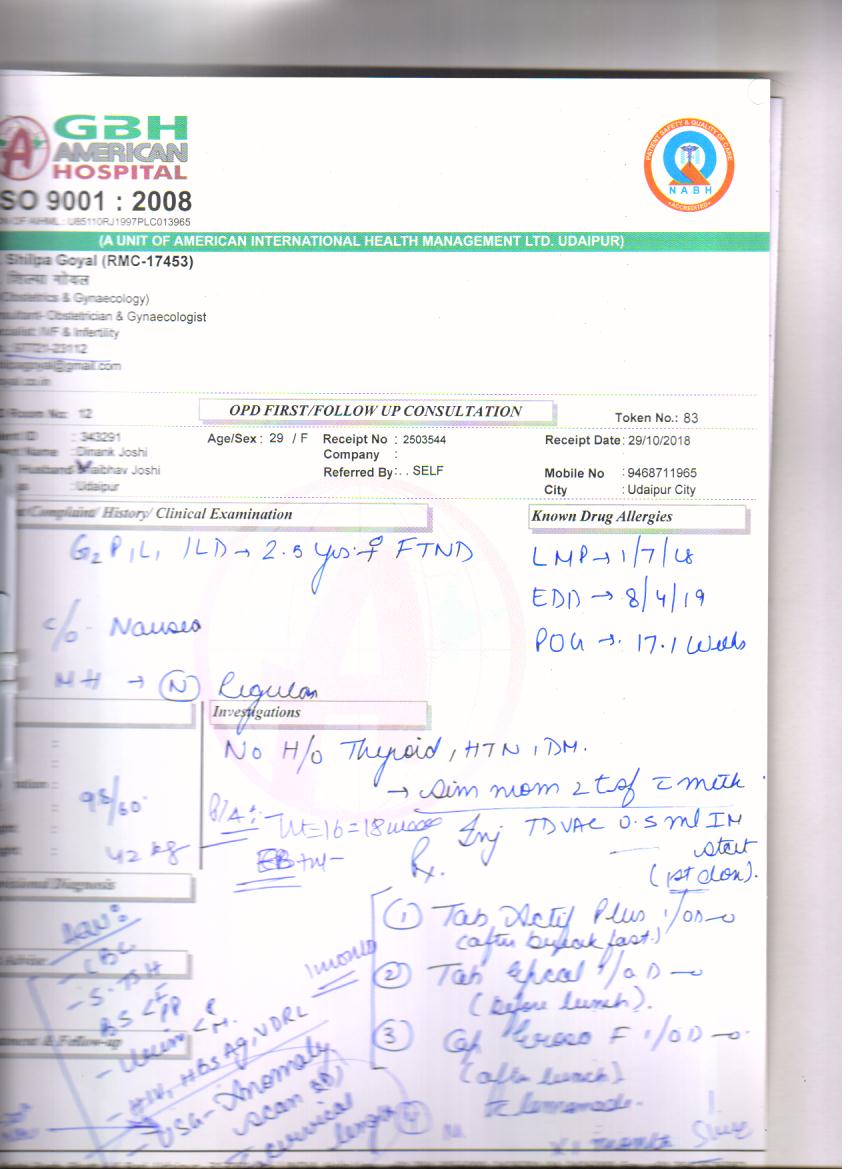 GBH
AMERICAN
HOSPITAL
SO 9001 : 2008
U85110RJ1997PLC013965
PATIENT SAFETY & QUALITY OF CARE
NABH
ACCREDITED
(A UNIT OF AMERICAN INTERNATIONAL HEALTH MANAGEMENT LTD. UDAIPUR)
Shilpa Goyal (RMC-17453)
शिल्पा गोयल
Obstetrics & Gynaecology)
sultant- Obstetrician & Gynaecologist
cialist: IVF & Infertility
97721-23112
@gmail.com
Room No: 12
OPD FIRST/FOLLOW UP CONSULTATION
Token No.: 83
ID : 343291
Age/Sex : 29 / F
Receipt No : 2503544
Receipt Date: 29/10/2018
Name : Dinank Joshi
Company :
Husband Vaibhav Joshi
Referred By: . . SELF
Mobile No : 9468711965
: Udaipur
City : Udaipur City
Complaint/ History/ Clinical Examination
Known Drug Allergies
G2 P1 L1 1LD → 2.5 yrs ♀ FTND
LMP → 1/7/18
EDD → 8/4/19
c/o - Nausea
POG → 17.1 Weeks
MH → (N) Regular
Investigations
No H/o Thyroid, HTN, DM.
→ Sim mom 2 tsf c milk
98/60
P/A :-
Ut = 16 = 18 weeks
Inj TDVAC 0.5 ml IM
42 kg
stat
Rx.
(1st dose).
Provisional Diagnosis
Adv :-
(1) Tab Actif Plus 1/OD
(after breakfast)
- CBC
- S. TSH
(2) Tab 1/OD
BS < F PP
(before lunch).
- Urine < R M.
1 month
(3) Cap F 1/OD
- HIV, HBsAg, VDRL
& Follow-up
(after lunch)
- USG - Anomaly
scan
c lemonade.
cervical
length
(4)
x 1 month